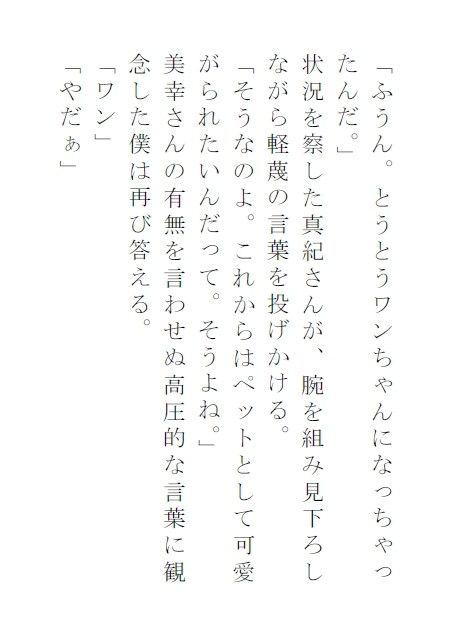 「ふうん。とうとうワンちゃんになっちゃっ
たんだ。」
状況を察した真紀さんが、腕を組み見下ろし
ながら軽蔑の言葉を投げかける。
「そうなのよ。これからはペットとして可愛
がられたいんだって。そうよね。」
美幸さんの有無を言わせぬ高圧的な言葉に観
念した僕は再び答える。
「ワン」
「やだぁ」